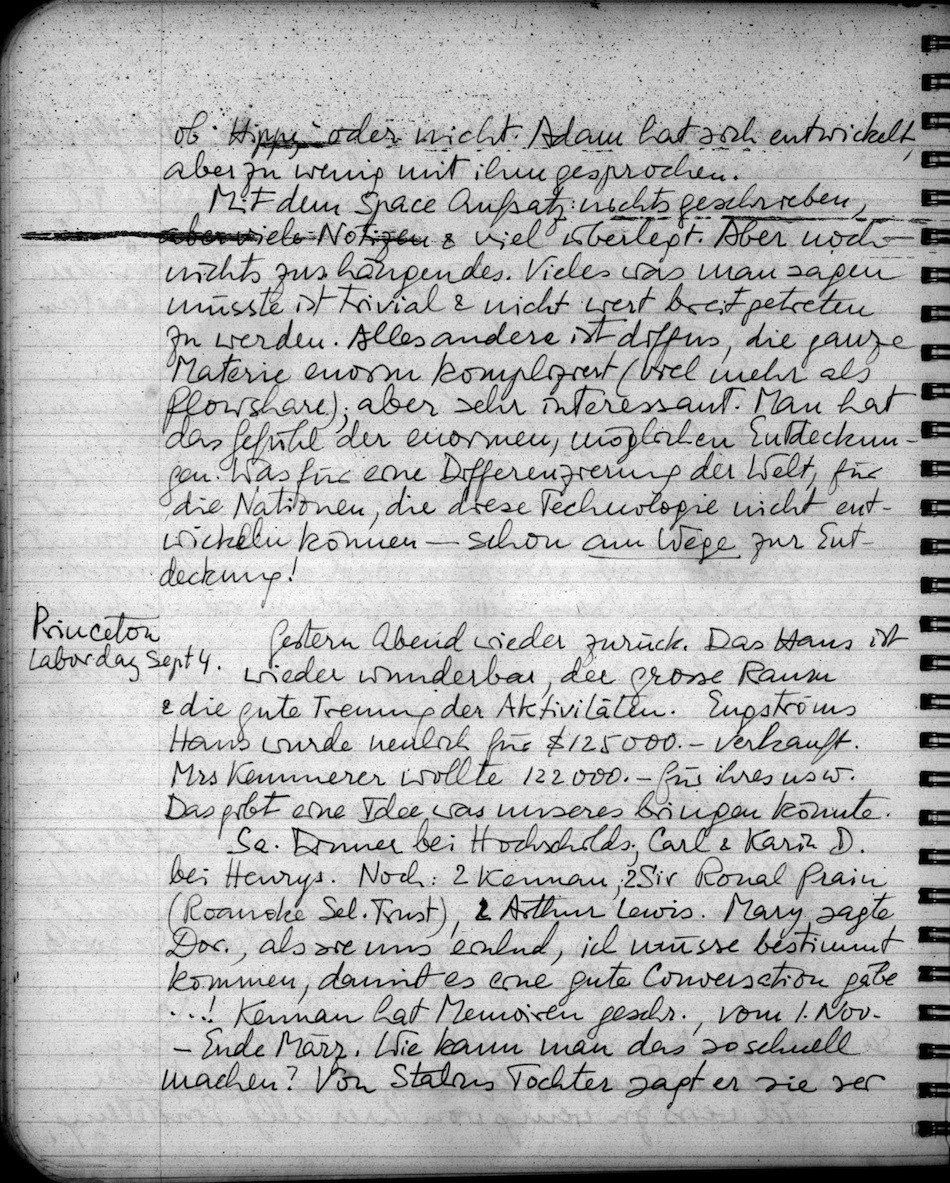 ob Hippy oder nicht. Adam hat sich entwickelt,
aber zu wenig mit ihm gesprochen.
Mit dem Space Aufsatz: nichts geschrieben,
aber viele Notizen & viel überlegt. Aber noch
nichts zushängendes. Vieles was man sagen
müsste ist trivial & nicht wert breitgetreten
zu werden. Alles andere ist diffus, die ganze
Materie enorm kompliziert (viel mehr als
Plowshare); aber sehr interessant. Man hat
das Gefühl der enormen, möglichen Entdeckun-
gen. Was für eine Differenzierung der Welt, für
die Nationen, die diese Technologie nicht ent-
wickeln können — schon am Wege zur Ent-
deckung!
Princeton
Labor day Sept 4.
Gestern Abend wieder zurück. Das Haus ist
wieder wunderbar, der grosse Raum
& die gute Trennung der Aktivitäten. Engströms
Haus wurde neulich für $125000.– verkauft.
Mrs Kemmerer wollte 122000.– für ihres usw.
Das gibt eine Idee was unseres bringen könnte.
Sa. Dinner bei Hochschilds, Carl & Karin D.
bei Henrys. Noch: 2 Kennan, 2 Sir Ronal Prain
(Roanoke Sel. Trust), 2 Arthur Lewis. Mary sagte
Dor., als sie uns einlud, ich müsse bestimmt
kommen, damit es eine gute Conversation gäbe
...! Kennan hat Memoiren geschr., vom 1. Nov.
– Ende März. Wie kann man das so schnell
machen? Von Stalins Tochter sagt er sie sei